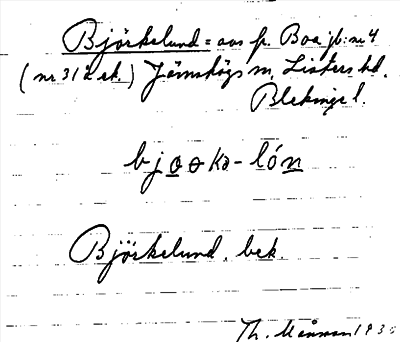 Björkelund = avs fr. Boa jb: nr 4
(nr 3 1/2 sk.) Jämshögs sn, Listers hd,
Blekinge l.
bjɷɵkə-lón
Björkelund, bek.
Th. Månsson 1935